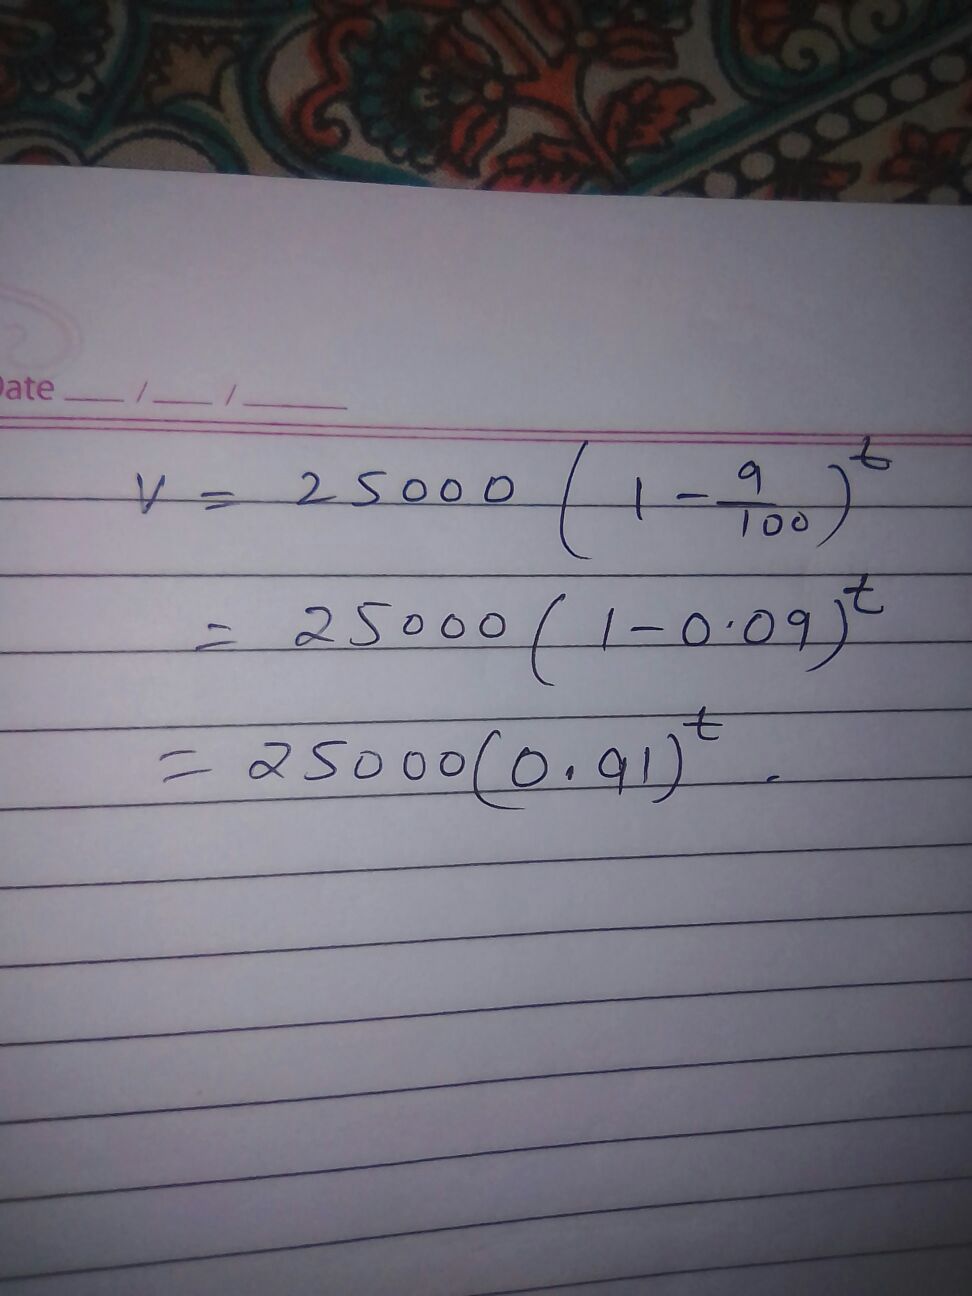 Date ___/___/______
V = 25000 (1 - 9/100)^t
= 25000 (1-0.09)^t
= 25000(0.91)^t .